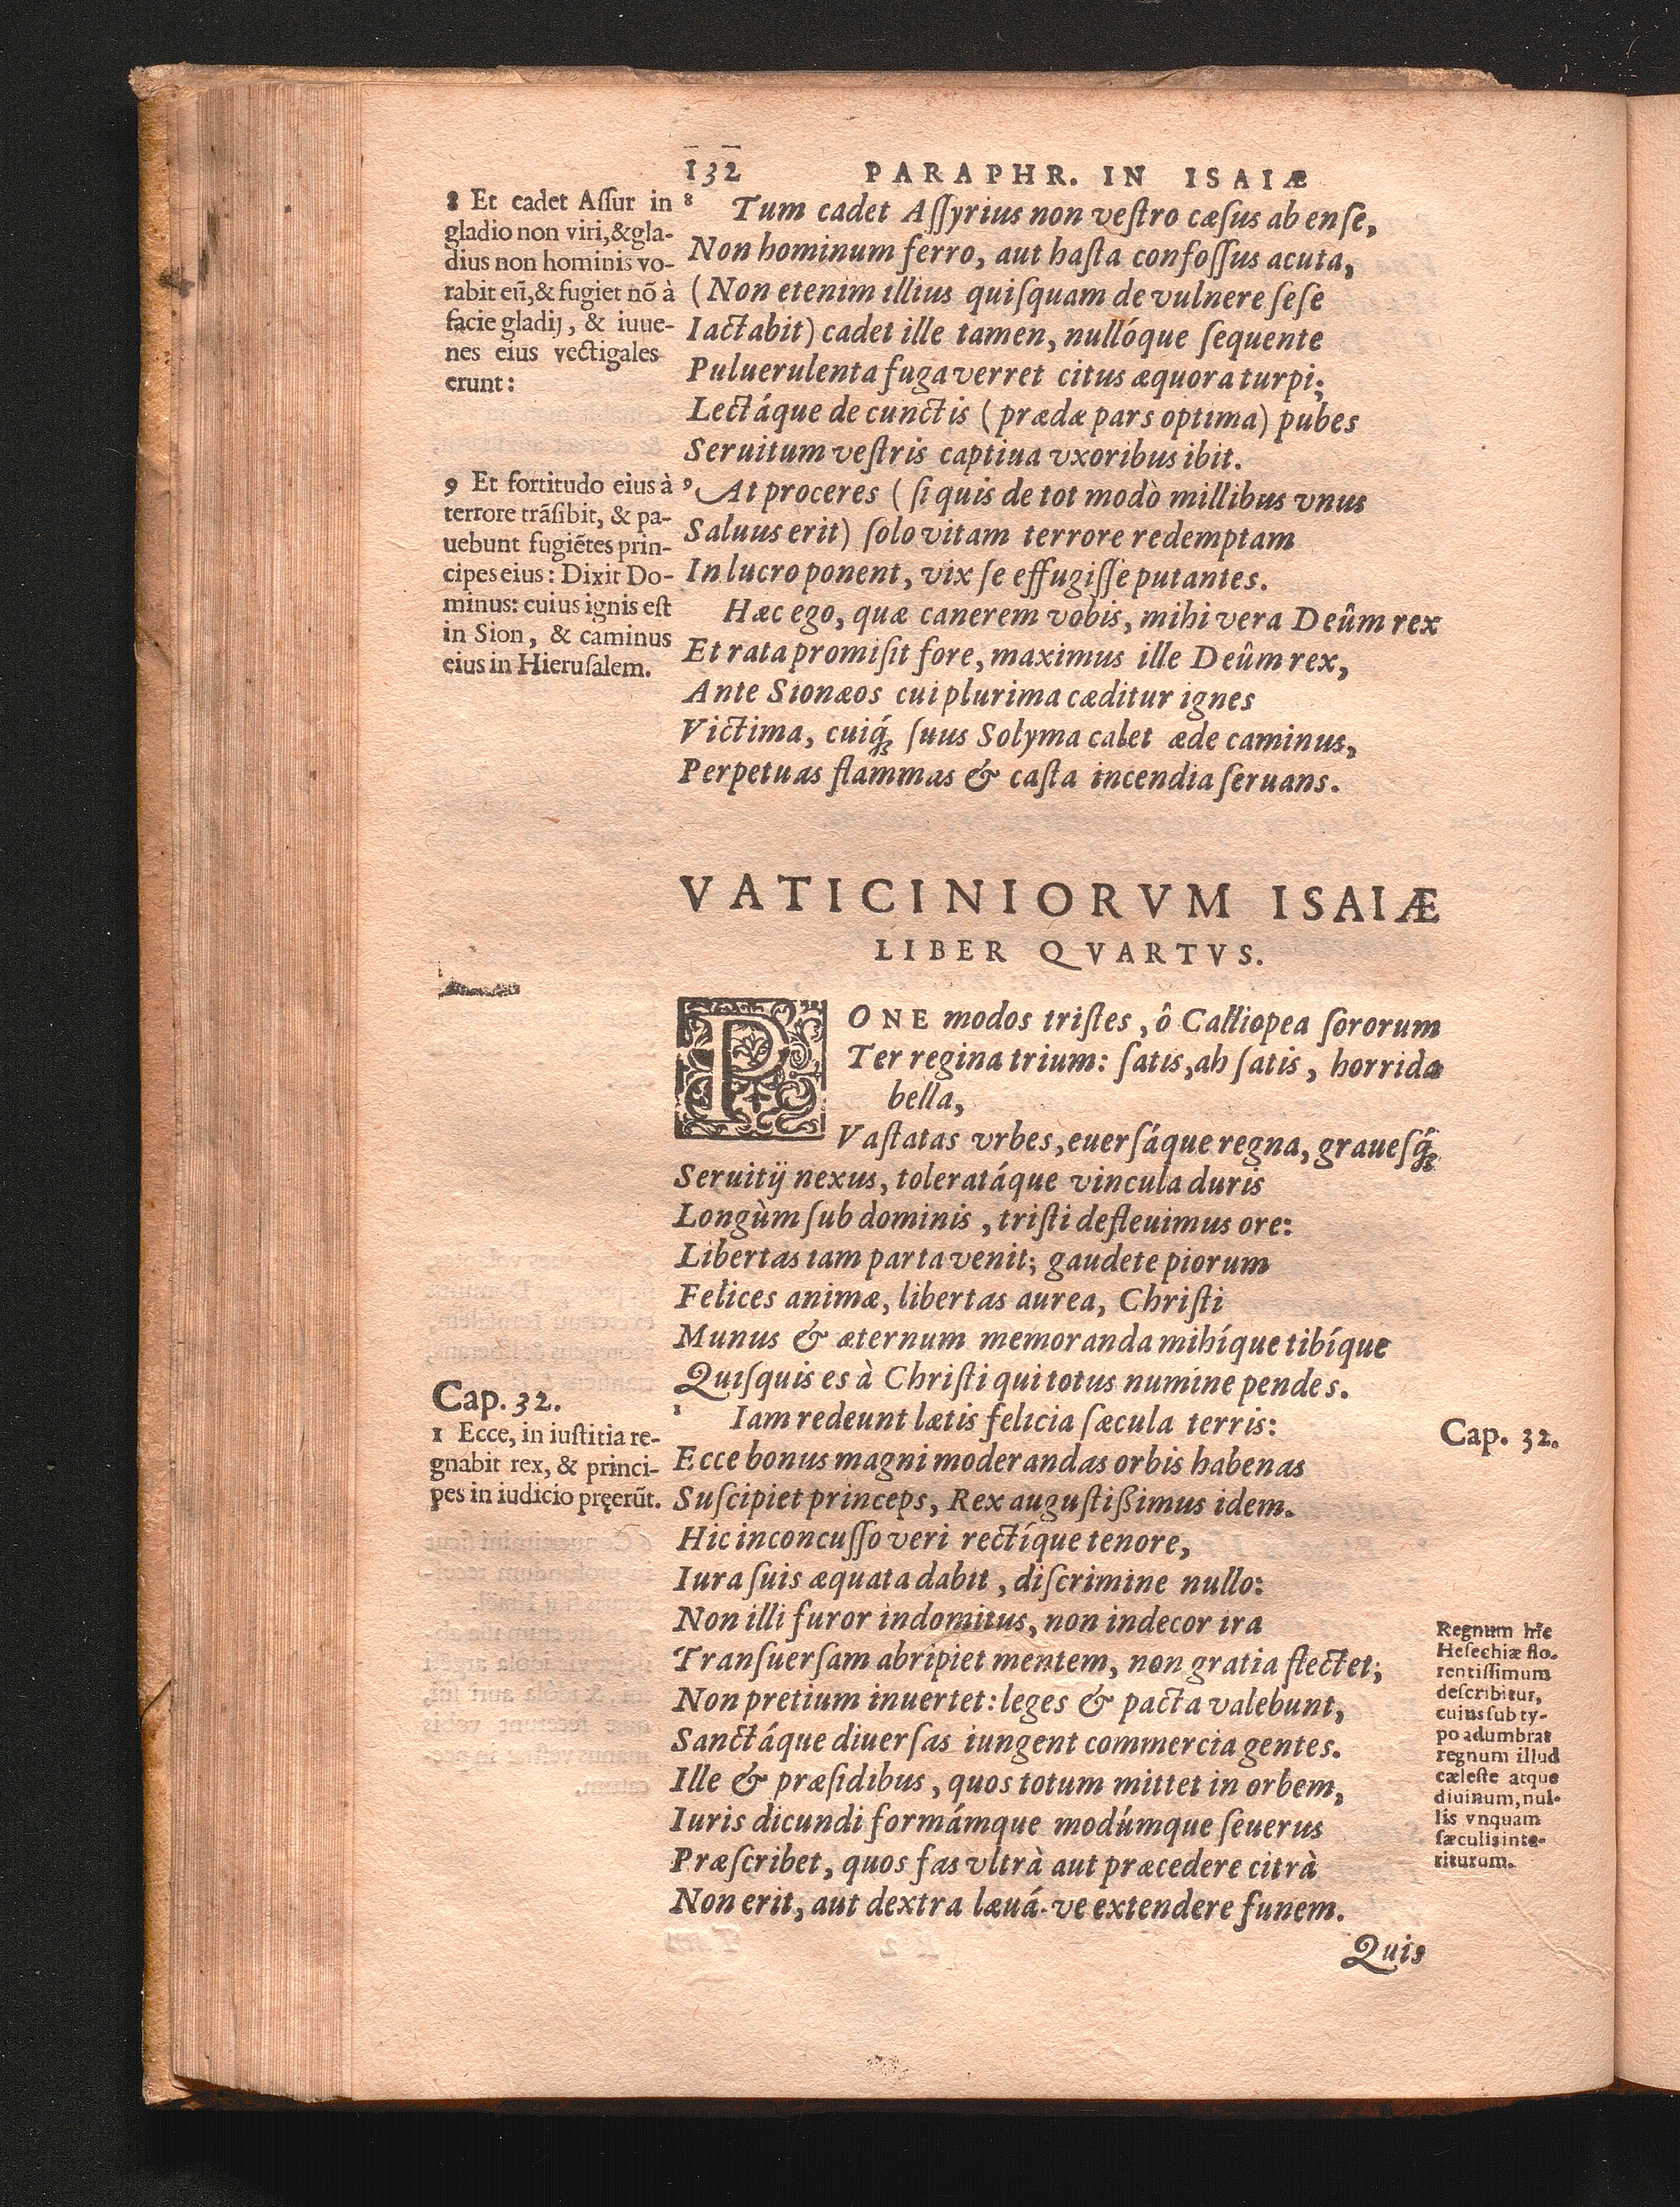 132 PARAPHR. IN ISAIÆ
8 Et cadet Aſſur in
gladio non viri, & gla-
dius non hominis vo-
rabit eũ, & fugiet nõ à
facie gladij, & iuue-
nes eius vectigales
erunt:
9 Et fortitudo eius à
terrore trãſibit, & pa-
uebunt fugiẽtes prin-
cipes eius: Dixit Do-
minus: cuius ignis eſt
in Sion, & caminus
eius in Hieruſalem.
8 Tum cadet Aſſyrius non veſtro cæſus ab enſe,
Non hominum ferro, aut haſta confoſſus acuta,
(Non etenim illius quiſquam de vulnere ſeſe
Iactabit) cadet ille tamen, nullóque ſequente
Puluerulenta fuga verret citus æquora turpi;
Lectáque de cunctis (prædæ pars optima) pubes
Seruitum veſtris captiua vxoribus ibit.
9 At proceres (ſi quis de tot modò millibus vnus
Saluus erit) ſolo vitam terrore redemptam
In lucro ponent, vix ſe effugiſſe putantes.
Hæc ego, quæ canerem vobis, mihi vera Deûm rex
Et rata promiſit fore, maximus ille Deûm rex,
Ante Sionæos cui plurima cæditur ignes
Victima, cuiq́ꝫ ſuus Solyma calet æde caminus,
Perpetuas flammas & caſta incendia ſeruans.
VATICINIORVM ISAIÆ
LIBER QVARTVS.
PONE modos triſtes, ô Calliopea ſororum
Ter regina trium: ſatis, ah ſatis, horrida
bella,
Vaſtatas vrbes, euerſáque regna, graueſq́ꝫ
Seruitij nexus, toleratáque vincula duris
Longùm ſub dominis, triſti defleuimus ore:
Libertas iam parta venit; gaudete piorum
Felices animæ, libertas aurea, Chriſti
Munus & æternum memoranda mihíque tibíque
Quiſquis es à Chriſti qui totus numine pendes.
Cap. 32.
1 Ecce, in iuſtitia re-
gnabit rex, & princi-
pes in iudicio pręerũt.
1 Iam redeunt lætis felicia ſæcula terris:
Ecce bonus magni moderandas orbis habenas
Suſcipiet princeps, Rex auguſtißimus idem.
Hic inconcuſſo veri rectíque tenore,
Iura ſuis æquata dabit, diſcrimine nullo:
Non illi furor indomitus, non indecor ira
Tranſuerſam abripiet mentem, non gratia flectet;
Non pretium inuertet: leges & pacta valebunt,
Sanctáque diuerſas iungent commercia gentes.
Ille & præſidibus, quos totum mittet in orbem,
Iuris dicundi formámque modúmque ſeuerus
Præſcribet, quos fas vltrà aut præcedere citrà
Non erit, aut dextra læuá-ve extendere funem.
Cap. 32.
Regnum hîc
Heſechiæ flo-
rentiſſimum
deſcribitur,
cuius ſub ty-
po adumbrat
regnum illud
cæleſte atque
diuinum, nul-
lis vnquam
ſæculis inte-
riturum.
Quis